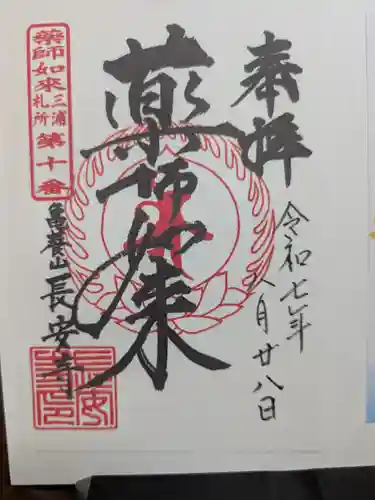 奉拝
令和七年八月廿八日
薬師如来
薬師如來
三浦
札所
第十番
亀養山長安寺